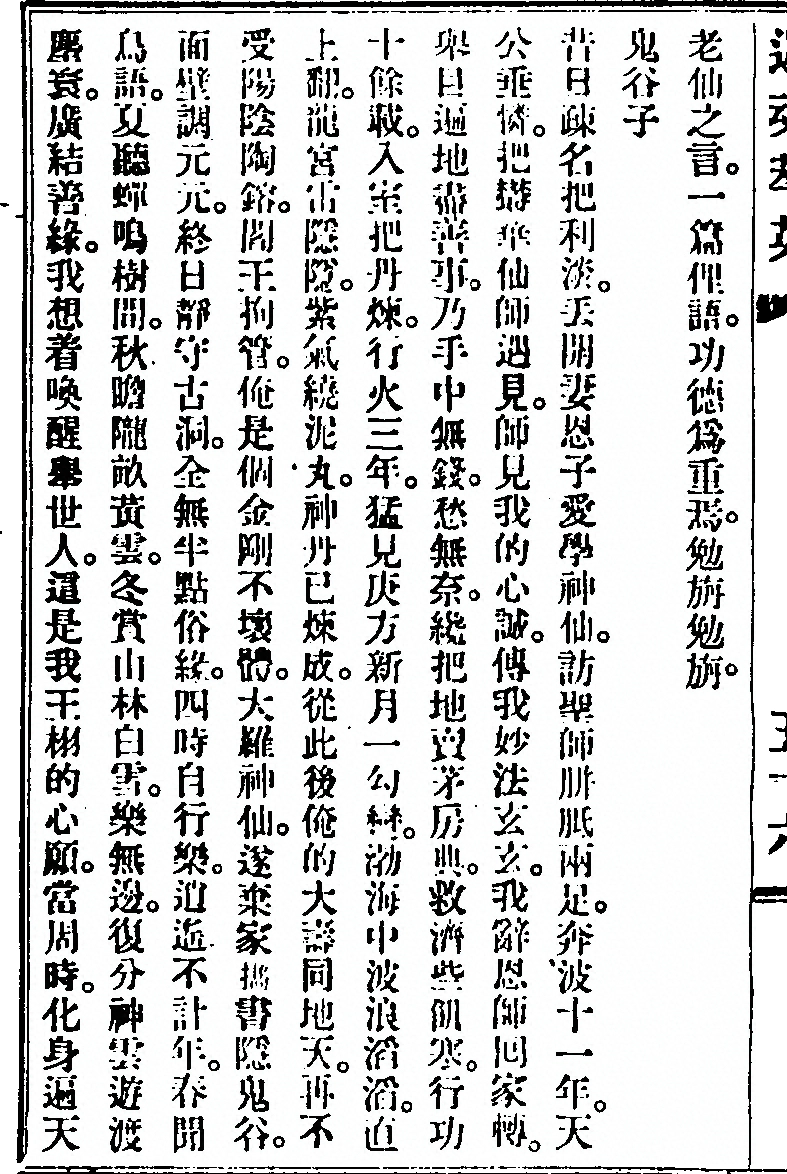 老仙之言。一篇俚語。功德爲重焉。勉旃勉旃。
鬼谷子
昔日疎名把利淡。丟開妻恩子愛學神仙。訪聖師胼胝兩足。奔波十一年。天
公垂憐。把奉仙師遇見。師見我的心誠。傳我妙法玄玄。我辭恩師回家轉。
舉目遍地盡善事。乃手中無錢。愁無奈。纔把地賣茅房典。救濟些飢寒。行功
十餘載。入室把丹煉。行火三年。猛見庚方新月一勾。渤海中波浪滔滔。直
上翻。龍宮雷隱隱。紫氣繞泥丸。神丹已煉成。從此後俺的大壽同地天。再不
受陽陰陶鎔。閻王拘管。俺是個金剛不壞體。大羅神仙。遂棄家攜書隱鬼谷。
面壁調元元。終日靜守古洞。全無半點俗緣。四時自行樂。逍遙不計年。春聞
鳥語。夏聽蟬鳴樹間。秋瞻隴畝黃雲。冬賞山林白雪。樂無邊。復分神雲遊渡
塵寰。廣結善緣。我想着喚醒舉世人。這是我王栩的心願。當周時。化身遍天
五十六